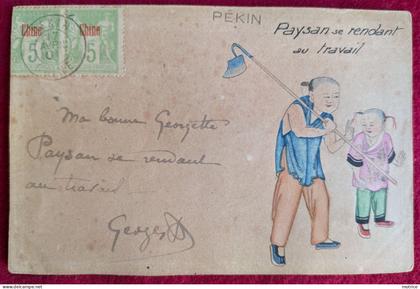 PÉKIN
Chine Chine
5 5
Paysan se rendant
au travail
Ma bonne Georgette
Paysan se rendant
au travail
Georges